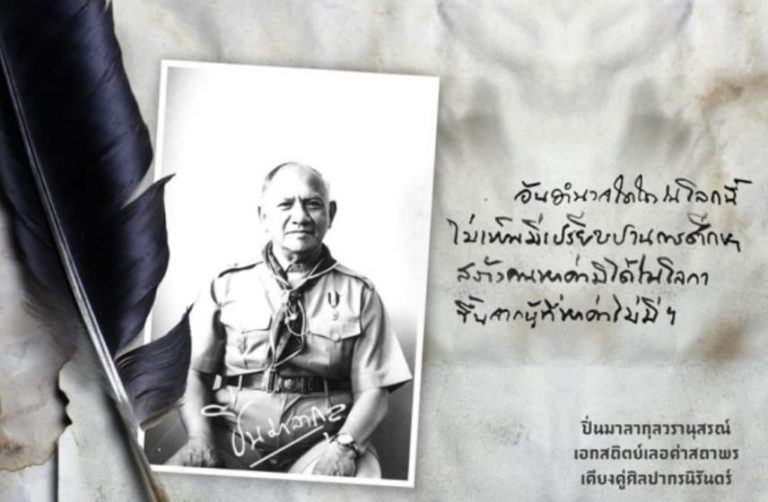 อันอำนาจใดใดในโลกนี้
ไม่เห็นมีเปรียบปานการศึกษา
สร้างคนหาค่ามิได้ในโลกา
ขึ้นจากผู้ที่หาค่าไม่มีฯ
ปิ่น มาลากุล
ปิ่นมาลากุลวรานุสรณ์
เอกสถิตย์เลอค่าสถาพร
เคียงคู่ศิลปากรนิรันดร์